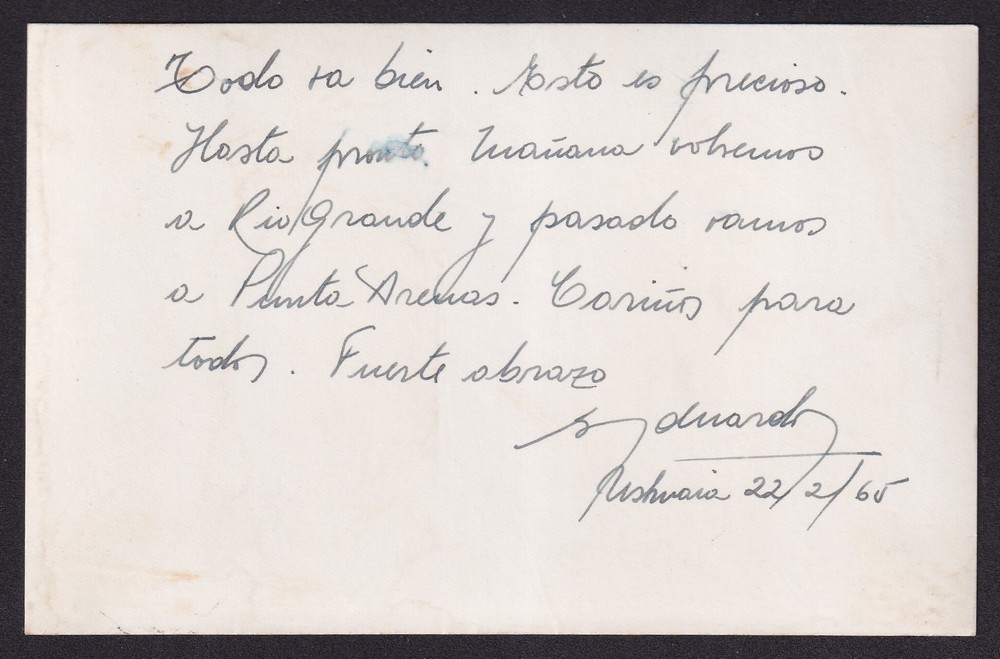 Todo va bien. Esto es precioso.
Hasta pronto. Mañana volvemos
a Rio Grande y pasado vamos
a Punta Arenas. Cariños para
todos. Fuerte abrazo
Eduardo
Ushuaia 22/2/65